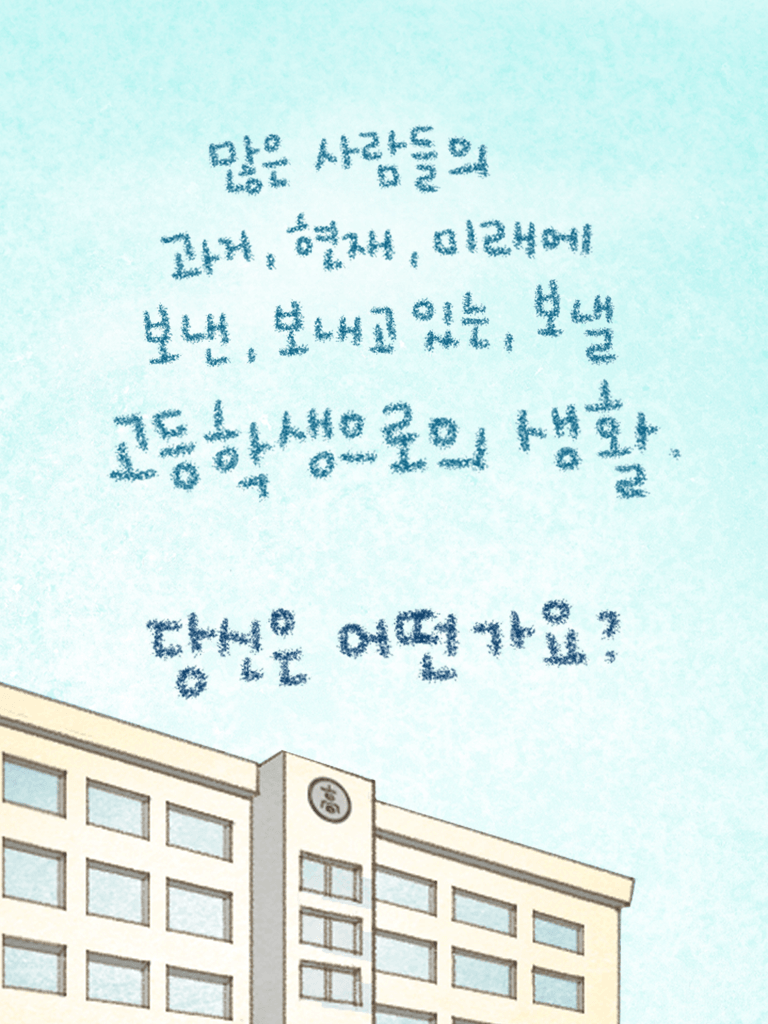 많은 사람들의
과거, 현재, 미래에
보낸, 보내고 있는, 보낼
고등학생으로의 생활.
당신은 어떤가요?
高